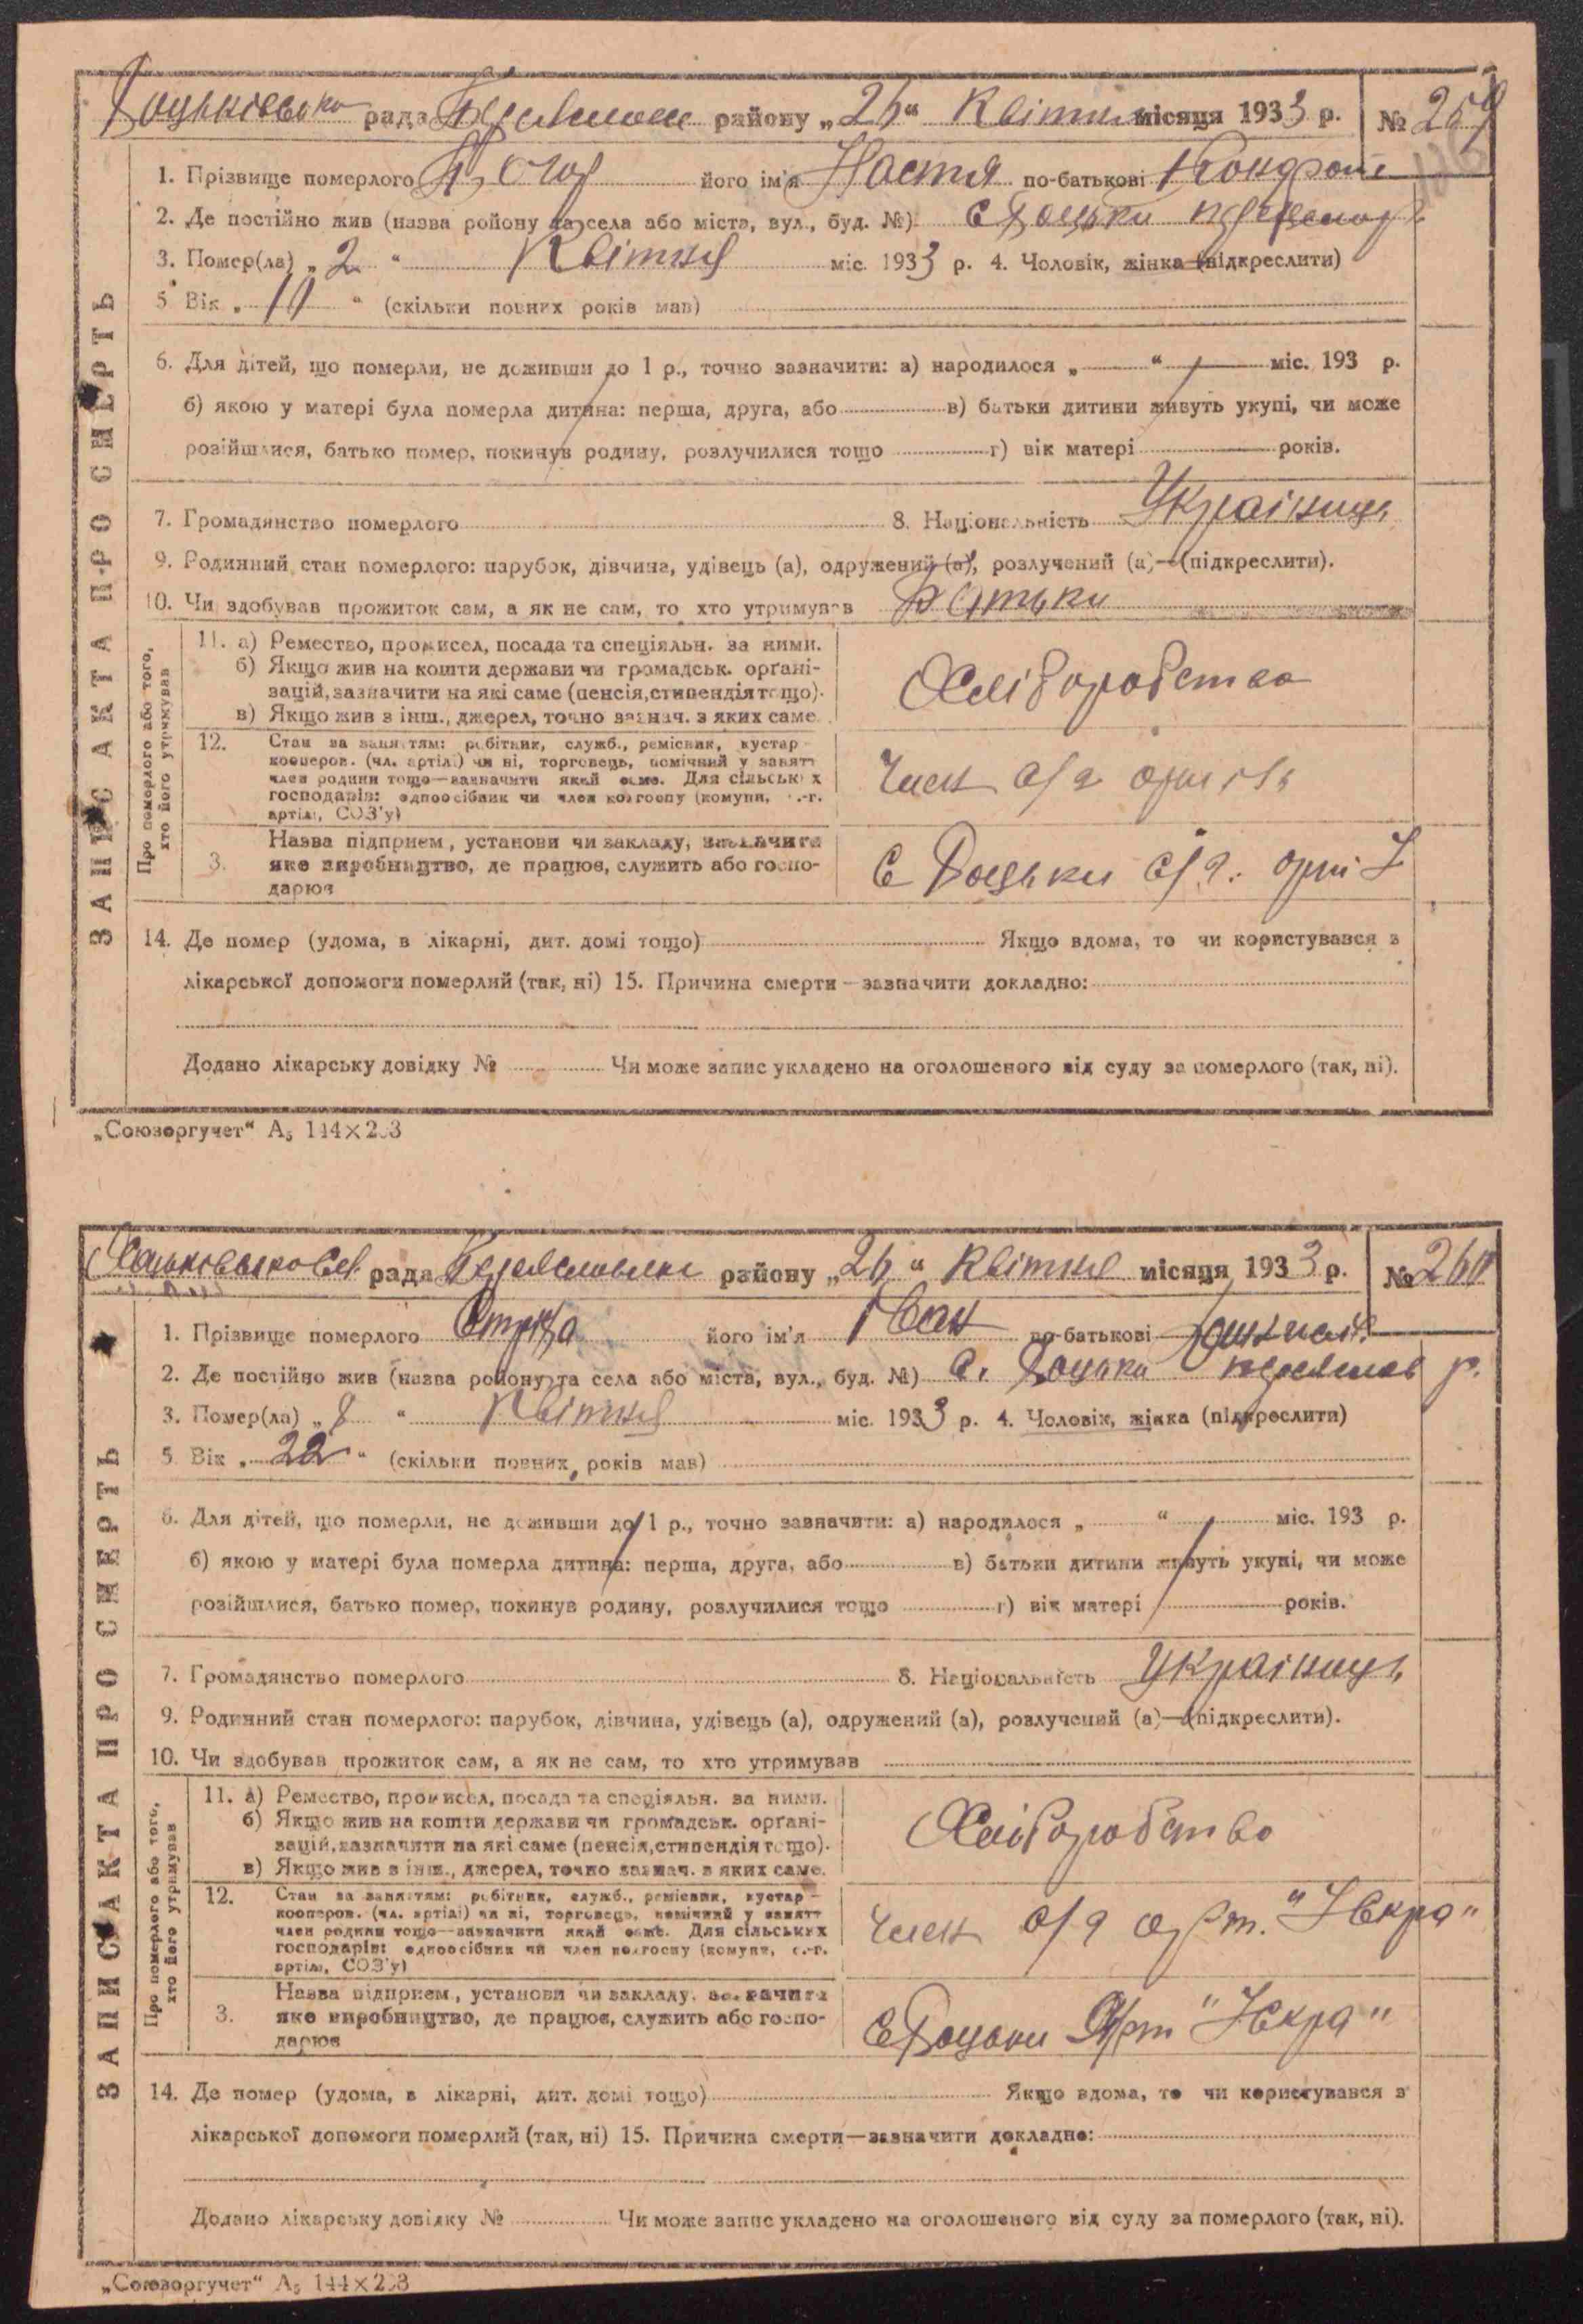 рада району „26“ Квітня місяця 1933 р. № 259
1. Прізвище померлого його ім'я Настя по-батькові
2. Де постійно жив (назва району та села або міста, вул., буд. №) с Доцьки
3. Помер(ла) „2“ Квітня міс. 1933 р. 4. Чоловік, жінка (підкреслити)
5 Вік „11“ (скільки повних років мав)
6. Для дітей, що померли, не доживши до 1 р., точно зазначити: а) народилося „ “ міс. 193 р.
б) якою у матері була померла дитина: перша, друга, або в) батьки дитини живуть укупі, чи може
розійшлися, батько помер, покинув родину, розлучилися тощо г) вік матері років.
7. Громадянство померлого 8. Національність Українць
9. Родинний стан померлого: парубок, дівчина, удівець (а), одружений (а), розлучений (а)—(підкреслити).
10. Чи здобував прожиток сам, а як не сам, то хто утримував Батьки
ЗАПИС АКТА ПРО СМЕРТЬ
Про померлого або того,
хто його утримував
11. а) Ремество, промисел, посада та спеціяльн. за ними.
б) Якщо жив на кошти держави чи громадськ. орґані-
зацій, зазначити на які саме (пенсія, стипендія тощо).
в) Якщо жив з інш., джерел, точно зазнач. з яких саме.
Хліборобство
12. Стан за заняттям: робітник, служб., ремісник, кустар—
кооперов. (чл. артілі) чи ні, торговець, помічний у занятт
член родини тощо—зазначити який саме. Для сільських
господарів: одноосібник чи член колгоспу (комуни, с.-г.
артілі, СОЗ'у)
Член с/г
3. Назва підприєм., установи чи закладу, зазначити
яке виробництво, де працює, служить або госпо-
дарює
С Доцьки с/г.
14. Де помер (удома, в лікарні, дит. домі тощо) Якщо вдома, то чи користувався з
лікарської допомоги померлий (так, ні) 15. Причина смерти—зазначити докладно:
Додано лікарську довідку № Чи може запис укладено на оголошеного від суду за померлого (так, ні).
„Союзоргучет“ А₅ 144×203
рада району „26“ Квітня місяця 1933 р. № 260
1. Прізвище померлого його ім'я Іван по-батькові
2. Де постійно жив (назва району та села або міста, вул., буд. №) с. Доцьки р.
3. Помер(ла) „8“ Квітня міс. 1933 р. 4. Чоловік, жінка (підкреслити)
5 Вік „22“ (скільки повних років мав)
6. Для дітей, що померли, не доживши до 1 р., точно зазначити: а) народилося „ “ міс. 193 р.
б) якою у матері була померла дитина: перша, друга, або в) батьки дитини живуть укупі, чи може
розійшлися, батько помер, покинув родину, розлучилися тощо г) вік матері років.
7. Громадянство померлого 8. Національність Українць
9. Родинний стан померлого: парубок, дівчина, удівець (а), одружений (а), розлучений (а)—(підкреслити).
10. Чи здобував прожиток сам, а як не сам, то хто утримував
ЗАПИС АКТА ПРО СМЕРТЬ
Про померлого або того,
хто його утримував
11. а) Ремество, промисел, посада та спеціяльн. за ними.
б) Якщо жив на кошти держави чи громадськ. орґані-
зацій, зазначити на які саме (пенсія, стипендія тощо).
в) Якщо жив з інш., джерел, точно зазнач. з яких саме.
Хліборобство
12. Стан за заняттям: робітник, служб., ремісник, кустар—
кооперов. (чл. артілі) чи ні, торговець, помічний у занятт
член родини тощо—зазначити який саме. Для сільських
господарів: одноосібник чи член колгоспу (комуни, с.-г.
артілі, СОЗ'у)
Член с/г арт. "Іскра"
3. Назва підприєм., установи чи закладу, зазначити
яке виробництво, де працює, служить або госпо-
дарює
С Доцьки Арт "Іскра"
14. Де помер (удома, в лікарні, дит. домі тощо) Якщо вдома, то чи користувався з
лікарської допомоги померлий (так, ні) 15. Причина смерти—зазначити докладно:
Додано лікарську довідку № Чи може запис укладено на оголошеного від суду за померлого (так, ні).
„Союзоргучет“ А₅ 144×203